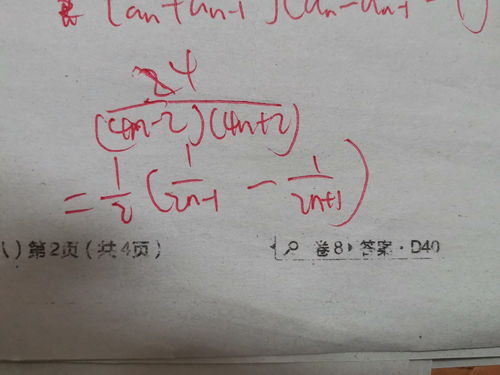 (an+an-1)(an-an-1-1)
4
(4n-2)(4n+2)
=1/2(1/2n-1 - 1/2n+1)
)第2页(共4页)
卷8 答案·D40